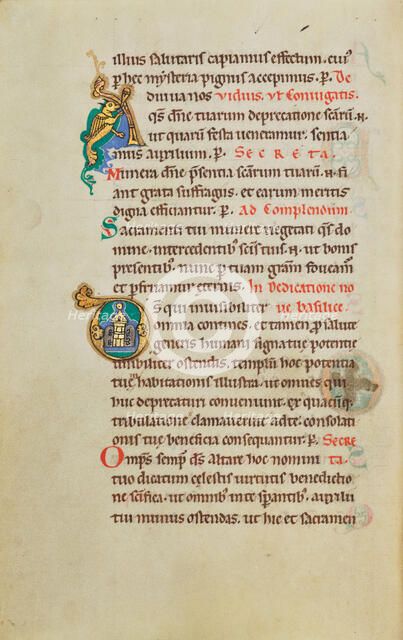 illius salutaris capiamus effectum. cui9
p hec mysteria pignus accepimus. P. De
diuua nos Viduis. ul Coniugatis.
qs dne tuarum deprecatione scarū. N.
ut quarū festa veneramur. sentia
mus auxilium. P. SECRETA.
Munera dne psentia scarum tuarū. N. fi
ant grata suffragiis. et earum meritis
digna efficiantur. P. Ad Complendum.
Sacramenti tui munere vegetati qs do
mine. intercedentib scis tuis. N. ut bonis
presentib. nunc p tuam gram foueam
et pfruamur eternis. In Dedicatione no
ue basilice.
S qui inuisibiliter
omnia contines. et tamen p salute
generis humani signa tue potentie
uisibiliter ostendis. templū hoc potentia
tue inhabitationis illustra. ut omnes qui
huc deprecaturi conueniunt. ex quacūq
tribulatione clamauerint ad te. consolati
onis tue beneficia consequantur. P. Secre
Omps semp ds. altare hoc nomini ta.
tuo dicatum celestis uirtutis benedictio
ne scifica. ut omnib in te sperantib. auxilii
tui munus ostendas. ut hic et sacramen
Heritage Images